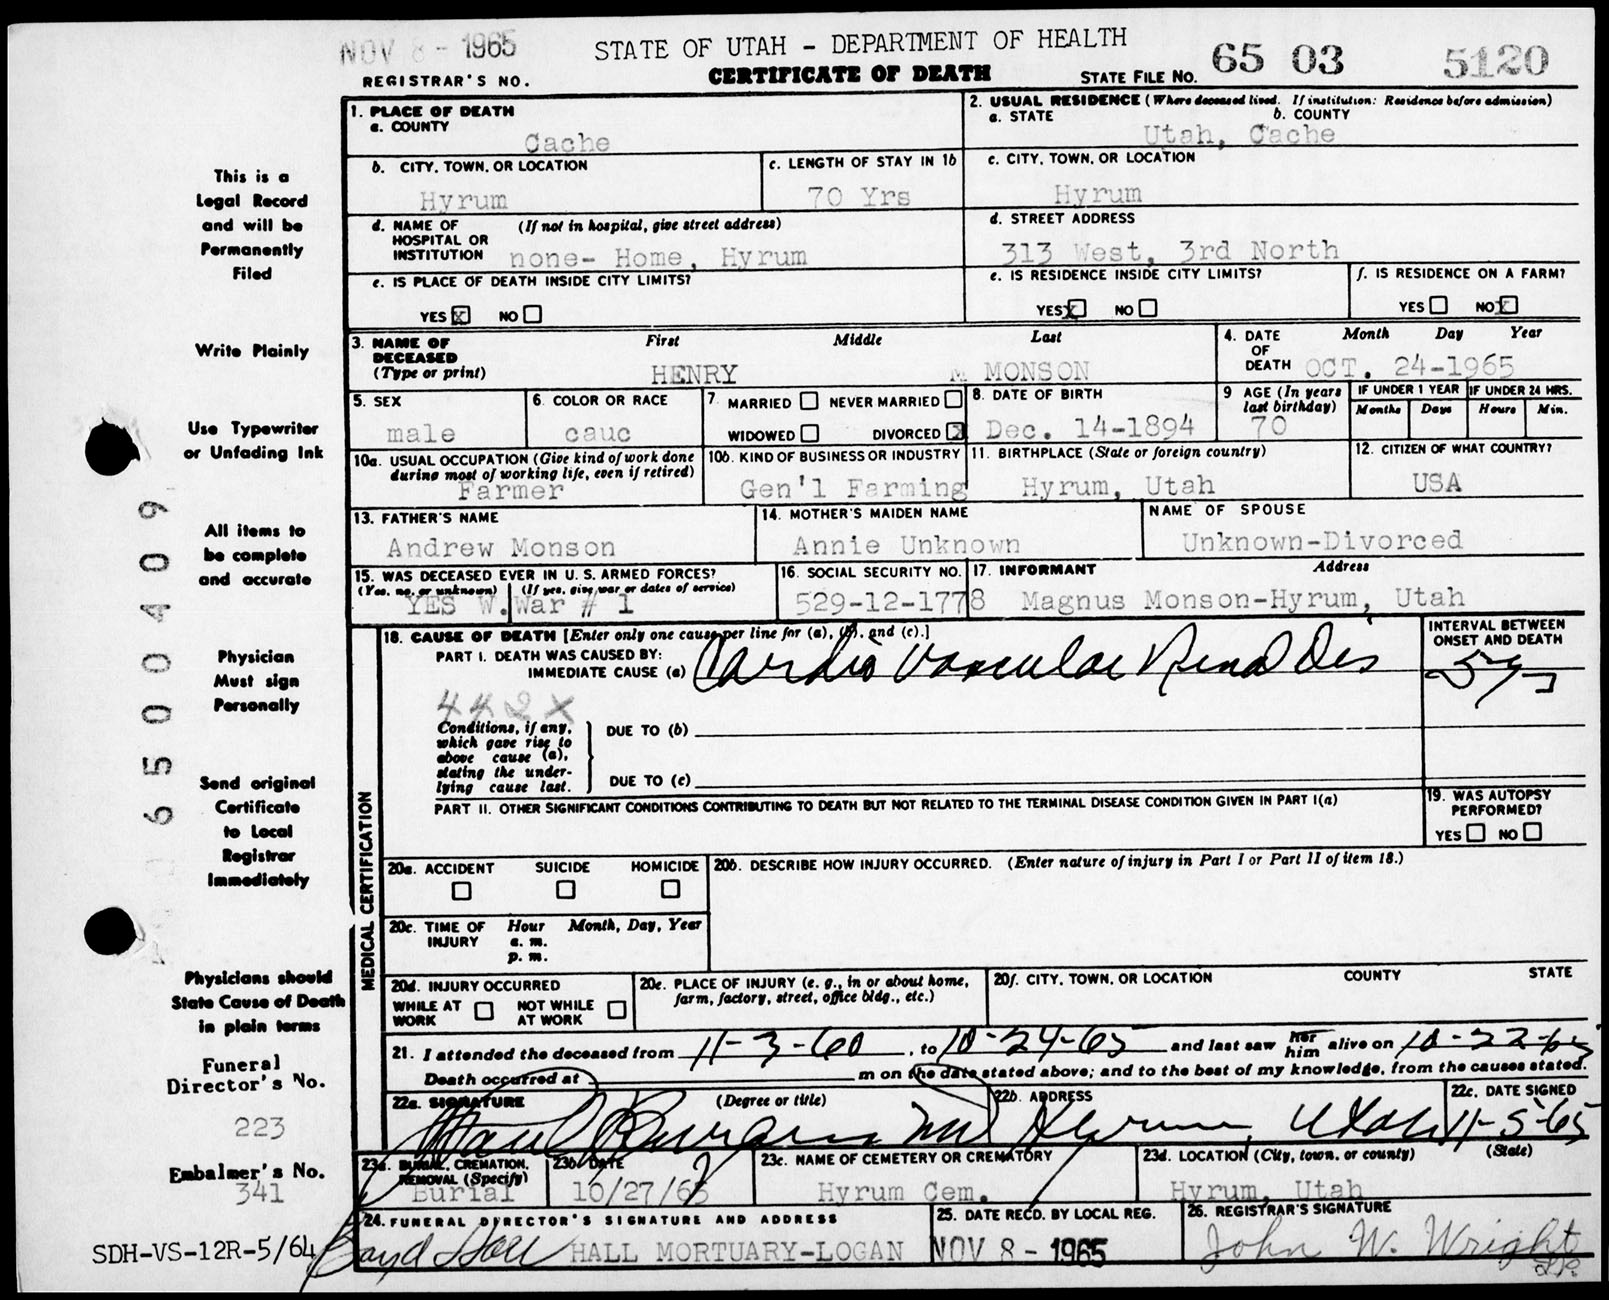 NOV 8 - 1965
STATE OF UTAH - DEPARTMENT OF HEALTH
65 03 5120
REGISTRAR'S NO.
CERTIFICATE OF DEATH
STATE FILE NO.
1. PLACE OF DEATH
a. COUNTY
Cache
2. USUAL RESIDENCE (Where deceased lived. If institution: Residence before admission)
a. STATE b. COUNTY
Utah, Cache
b. CITY, TOWN, OR LOCATION
Hyrum
c. LENGTH OF STAY IN 1b
70 Yrs
c. CITY, TOWN, OR LOCATION
Hyrum
d. NAME OF HOSPITAL OR INSTITUTION (If not in hospital, give street address)
none- Home, Hyrum
d. STREET ADDRESS
313 West, 3rd North
e. IS PLACE OF DEATH INSIDE CITY LIMITS?
YES X NO
e. IS RESIDENCE INSIDE CITY LIMITS?
YES X NO
f. IS RESIDENCE ON A FARM?
YES NO X
3. NAME OF DECEASED (Type or print)
First Middle Last
HENRY M MONSON
4. DATE OF DEATH
Month Day Year
OCT. 24-1965
5. SEX
male
6. COLOR OR RACE
cauc
7. MARRIED NEVER MARRIED
WIDOWED DIVORCED X
8. DATE OF BIRTH
Dec. 14-1894
9 AGE (In years last birthday)
70
IF UNDER 1 YEAR
Months Days
IF UNDER 24 HRS.
Hours Min.
10a. USUAL OCCUPATION (Give kind of work done during most of working life, even if retired)
Farmer
10b. KIND OF BUSINESS OR INDUSTRY
Gen'l Farming
11. BIRTHPLACE (State or foreign country)
Hyrum, Utah
12. CITIZEN OF WHAT COUNTRY?
USA
13. FATHER'S NAME
Andrew Monson
14. MOTHER'S MAIDEN NAME
Annie Unknown
NAME OF SPOUSE
Unknown-Divorced
15. WAS DECEASED EVER IN U. S. ARMED FORCES?
(Yes, no, or unknown) (If yes, give war or dates of service)
YES W.War # 1
16. SOCIAL SECURITY NO.
529-12-1778
17. INFORMANT Address
Magnus Monson-Hyrum, Utah
MEDICAL CERTIFICATION
18. CAUSE OF DEATH [Enter only one cause per line for (a), (b), and (c).]
PART I. DEATH WAS CAUSED BY:
IMMEDIATE CAUSE (a) Cardio Vascular Renal Dis
INTERVAL BETWEEN ONSET AND DEATH
442X
Conditions, if any, which gave rise to above cause (a), stating the underlying cause last.
DUE TO (b)
DUE TO (c)
PART II. OTHER SIGNIFICANT CONDITIONS CONTRIBUTING TO DEATH BUT NOT RELATED TO THE TERMINAL DISEASE CONDITION GIVEN IN PART I(a)
19. WAS AUTOPSY PERFORMED?
YES NO
20a. ACCIDENT SUICIDE HOMICIDE
20b. DESCRIBE HOW INJURY OCCURRED. (Enter nature of injury in Part I or Part II of item 18.)
20c. TIME OF INJURY Hour Month, Day, Year
a. m.
p. m.
20d. INJURY OCCURRED
WHILE AT WORK NOT WHILE AT WORK
20e. PLACE OF INJURY (e. g., in or about home, farm, factory, street, office bldg., etc.)
20f. CITY, TOWN, OR LOCATION COUNTY STATE
21. I attended the deceased from 11-3-60, to 10-24-65 and last saw her him alive on 10-22-65
Death occurred at m on the date stated above; and to the best of my knowledge, from the causes stated.
22a. SIGNATURE (Degree or title)
MD
22b. ADDRESS
Hyrum, Utah
22c. DATE SIGNED
11-5-65
23a. BURIAL, CREMATION, REMOVAL (Specify)
Burial
23b. DATE
10/27/65
23c. NAME OF CEMETERY OR CREMATORY
Hyrum Cem.
23d. LOCATION (City, town, or county) (State)
Hyrum, Utah
24. FUNERAL DIRECTOR'S SIGNATURE AND ADDRESS
Boyd Hall HALL MORTUARY-LOGAN
25. DATE RECD. BY LOCAL REG.
NOV 8 - 1965
26. REGISTRAR'S SIGNATURE
John W. Wright
This is a
Legal Record
and will be
Permanently
Filed
Write Plainly
Use Typewriter
or Unfading Ink
All items to
be complete
and accurate
Physician
Must sign
Personally
Send original
Certificate
to Local
Registrar
Immediately
Physicians should
State Cause of Death
in plain terms
Funeral
Director's No.
223
Embalmer's No.
341
SDH-VS-12R-5/64
6500409